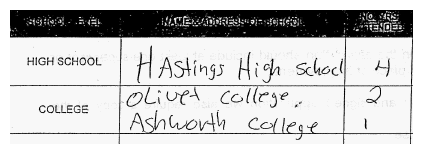 SCHOOL LEVEL NAME & ADDRESS OF SCHOOL NO. YRS. ATTENDED
HIGH SCHOOL HAStings High school 4
OLivet College. 2
COLLEGE
AShworth College 1